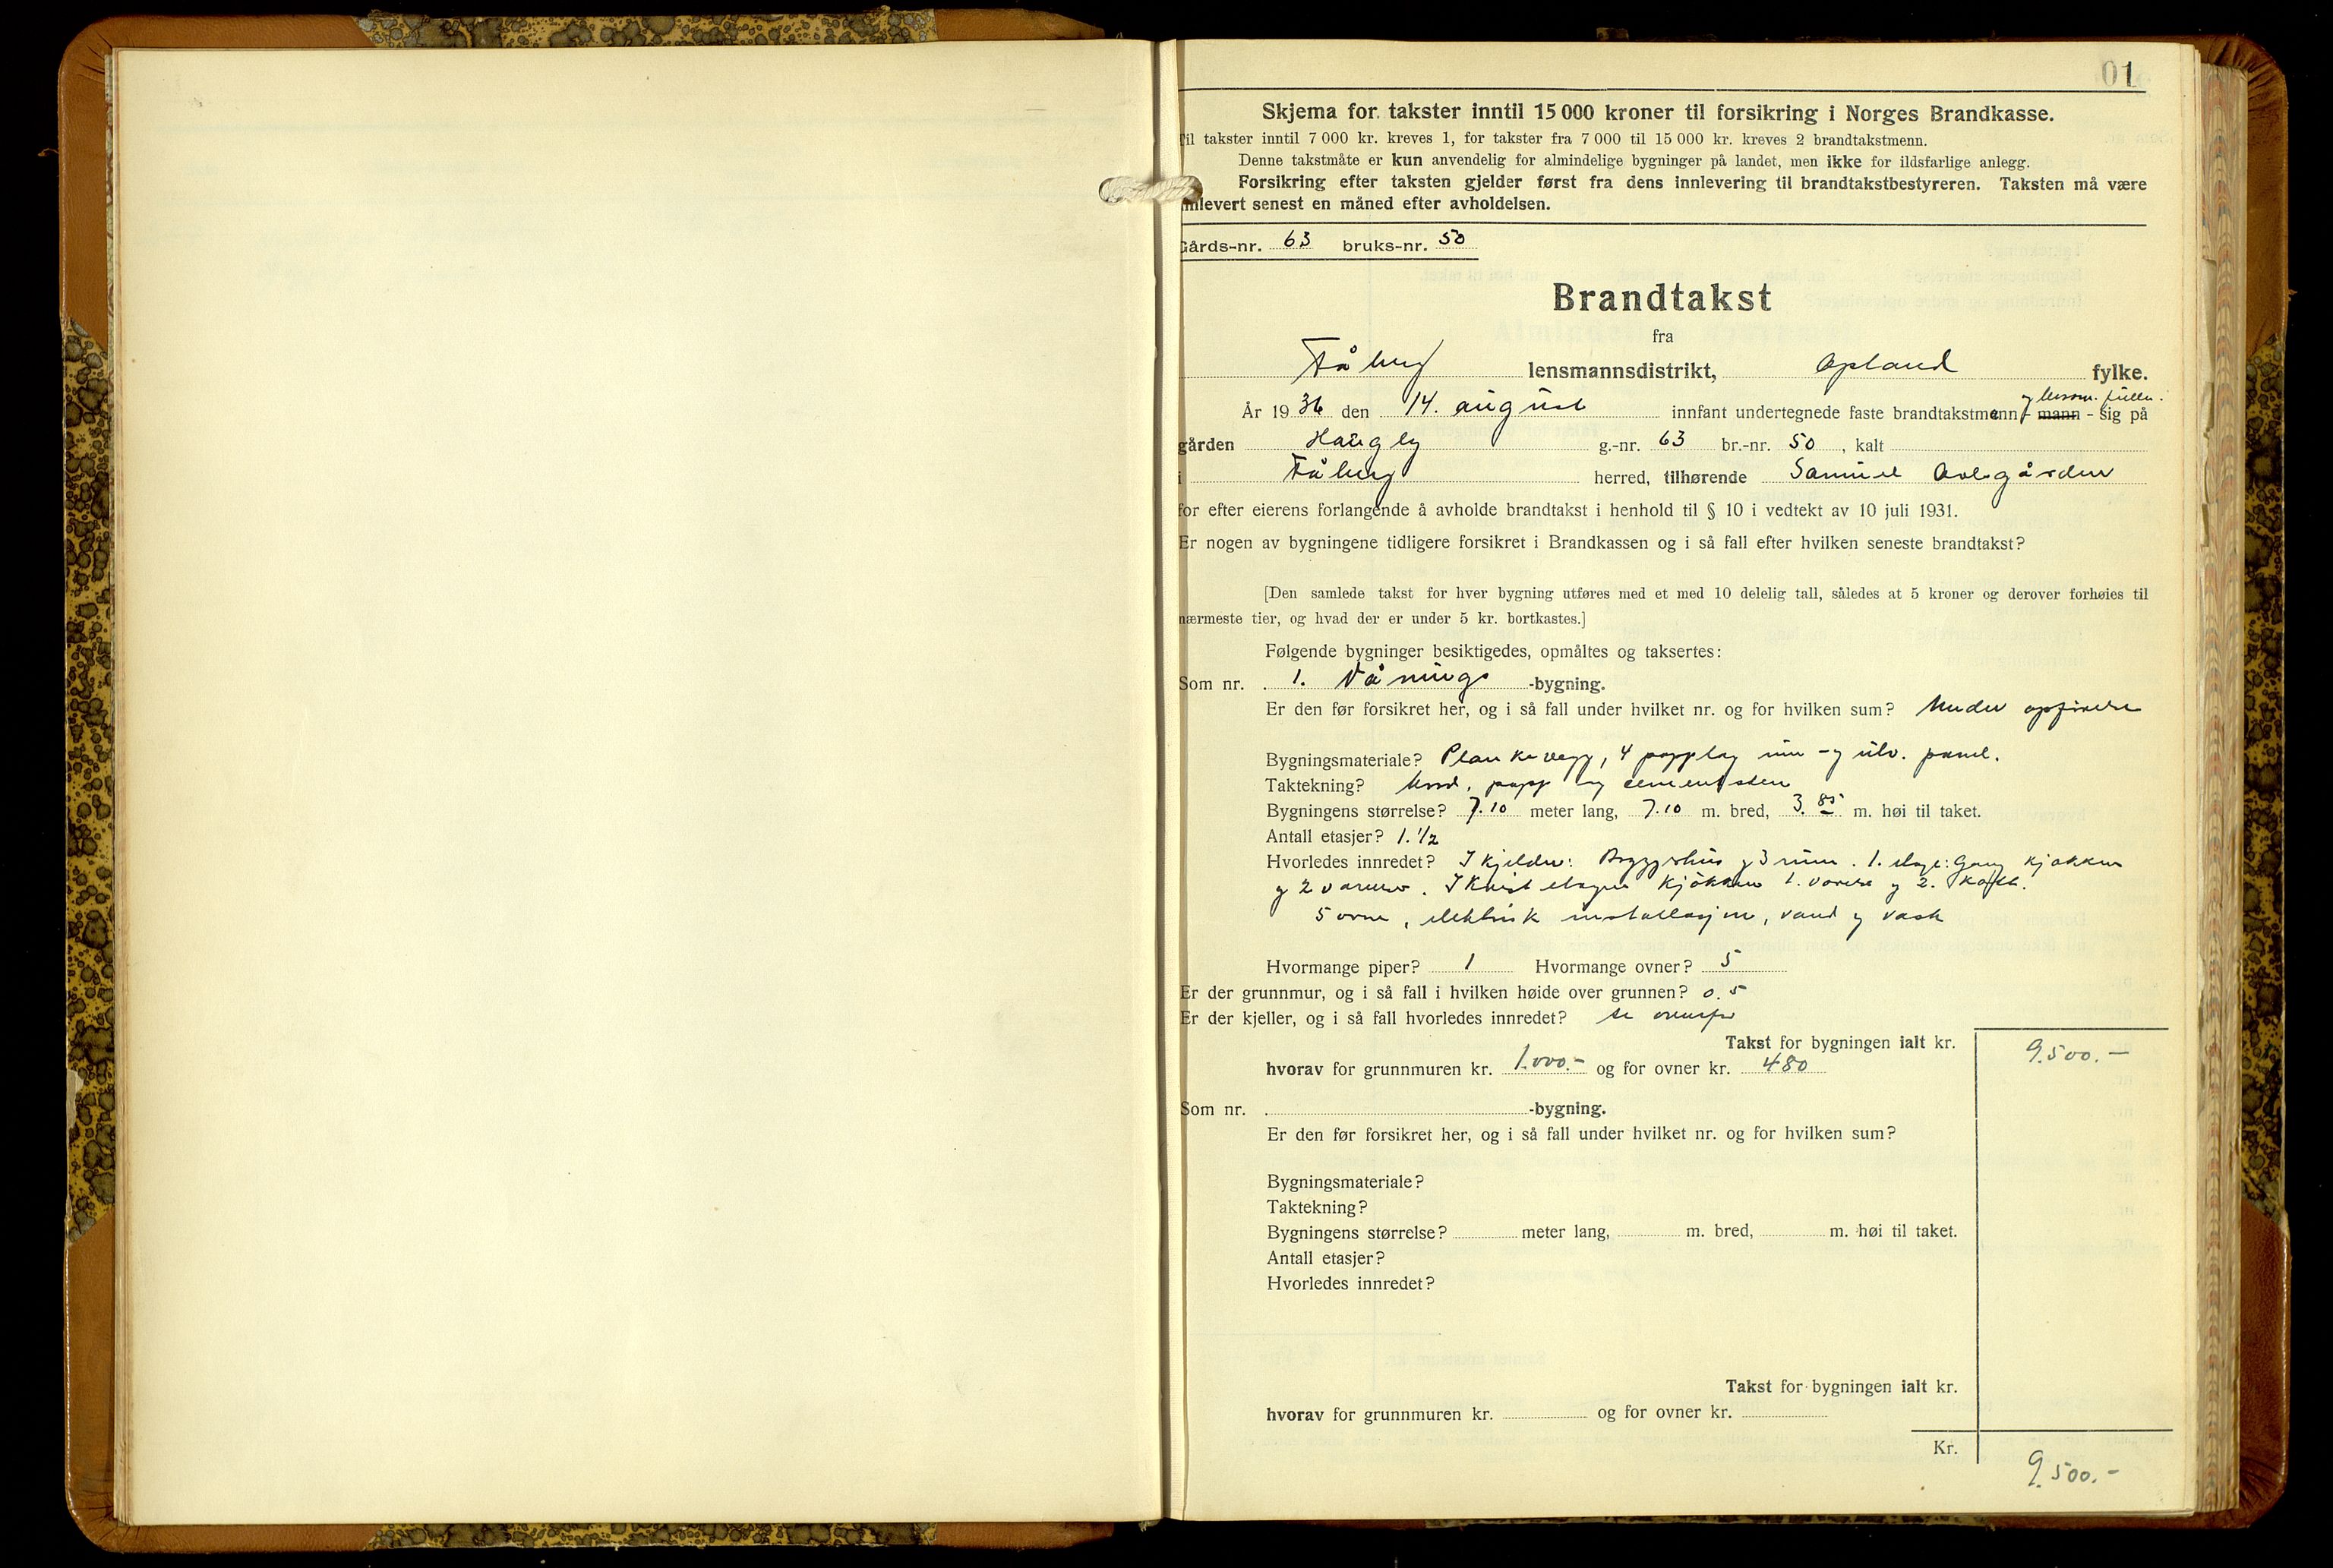 01
Skjema for takster inntil 15 000 kroner til forsikring i Norges Brandkasse.
il takster inntil 7 000 kr. kreves 1, for takster fra 7 000 til 15 000 kr. kreves 2 brandtakstmenn.
Denne takstmåte er kun anvendelig for almindelige bygninger på landet, men ikke for ildsfarlige anlegg.
Forsikring efter taksten gjelder først fra dens innlevering til brandtakstbestyreren. Taksten må være
nlevert senest en måned efter avholdelsen.
Gårds-nr. 63 bruks-nr. 50
Brandtakst
fra
Fåberg lensmannsdistrikt, Opland fylke.
År 1936 den 14. august innfant undertegnede faste brandtakstmenn - mann - sig på
gården Haugly g.-nr. 63 br.-nr. 50, kalt
i Fåberg herred, tilhørende Samuel
for efter eierens forlangende å avholde brandtakst i henhold til § 10 i vedtekt av 10 juli 1931.
Er nogen av bygningene tidligere forsikret i Brandkassen og i så fall efter hvilken seneste brandtakst?
[Den samlede takst for hver bygning utføres med et med 10 delelig tall, således at 5 kroner og derover forhøies til
nærmeste tier, og hvad der er under 5 kr. bortkastes.]
Følgende bygninger besiktigedes, opmåltes og taksertes:
Som nr. 1. Vånings -bygning.
Er den før forsikret her, og i så fall under hvilket nr. og for hvilken sum? Under opførelse
Bygningsmateriale? Plankevegg, 4 papplag inn - og utv. panel.
Taktekning? bord, papp og sementsten
Bygningens størrelse? 7.10 meter lang, 7.10 m. bred, 3.85 m. høi til taket.
Antall etasjer? 1.1/2
Hvorledes innredet? I kjelder: Bryggerhus og 3 rum. 1. etage: Gang kjøkken
og 2 værelser. I Kvist etagen kjøkken 1. værelse og 2. kott.
5 ovne, elektrisk installasjon, vand og vask
Hvormange piper? 1 Hvormange ovner? 5
Er der grunnmur, og i så fall i hvilken høide over grunnen? 0.5
Er der kjeller, og i så fall hvorledes innredet? se ovenfor
Takst for bygningen ialt kr. 9.500.-
hvorav for grunnmuren kr. 1.000.- og for ovner kr. 480
Som nr. -bygning.
Er den før forsikret her, og i så fall under hvilket nr. og for hvilken sum?
Bygningsmateriale?
Taktekning?
Bygningens størrelse? meter lang, m. bred, m. høi til taket.
Antall etasjer?
Hvorledes innredet?
Takst for bygningen ialt kr.
hvorav for grunnmuren kr. og for ovner kr.
Kr. 9.500.-